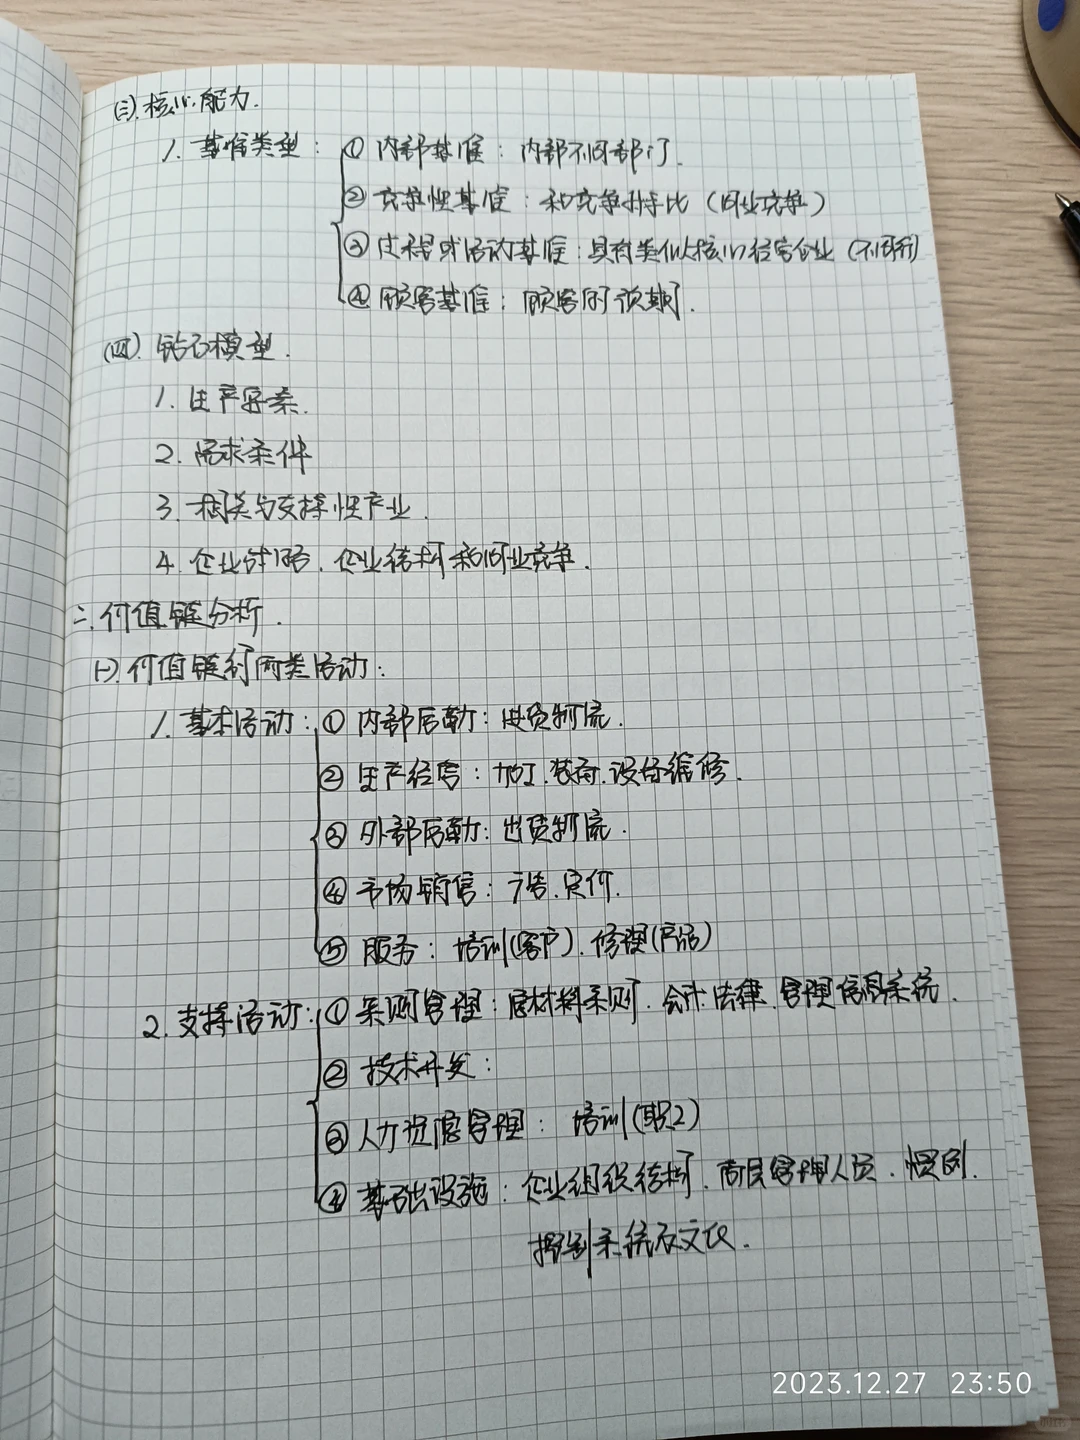 (三).核心能力.
1.基准类型:①内部基准:内部不同部门.
②竞争性基准:和竞争对手比(同业竞争)
③过程或活动基准:具有类似核心经营企业(不同行)
④顾客基准:顾客的预期.
(四).钻石模型.
1.生产要素.
2.需求条件
3.相关与支持性产业.
4.企业战略.企业结构和同业竞争.
二.价值链分析.
(一).价值链的两类活动:
1.基本活动:①内部后勤:进货物流.
②生产经营:加工.装配.设备维修.
③外部后勤:出货物流.
④市场销售:广告.定价.
⑤服务:培训(客户).修理(产品)
2.支持活动:①采购管理:原材料采购.会计.法律.管理信息系统.
②技术开发:
③人力资源管理:培训(职工)
④基础设施:企业组织结构.高层管理人员.惯例.
控制系统及文化.
2023.12.27 23:50